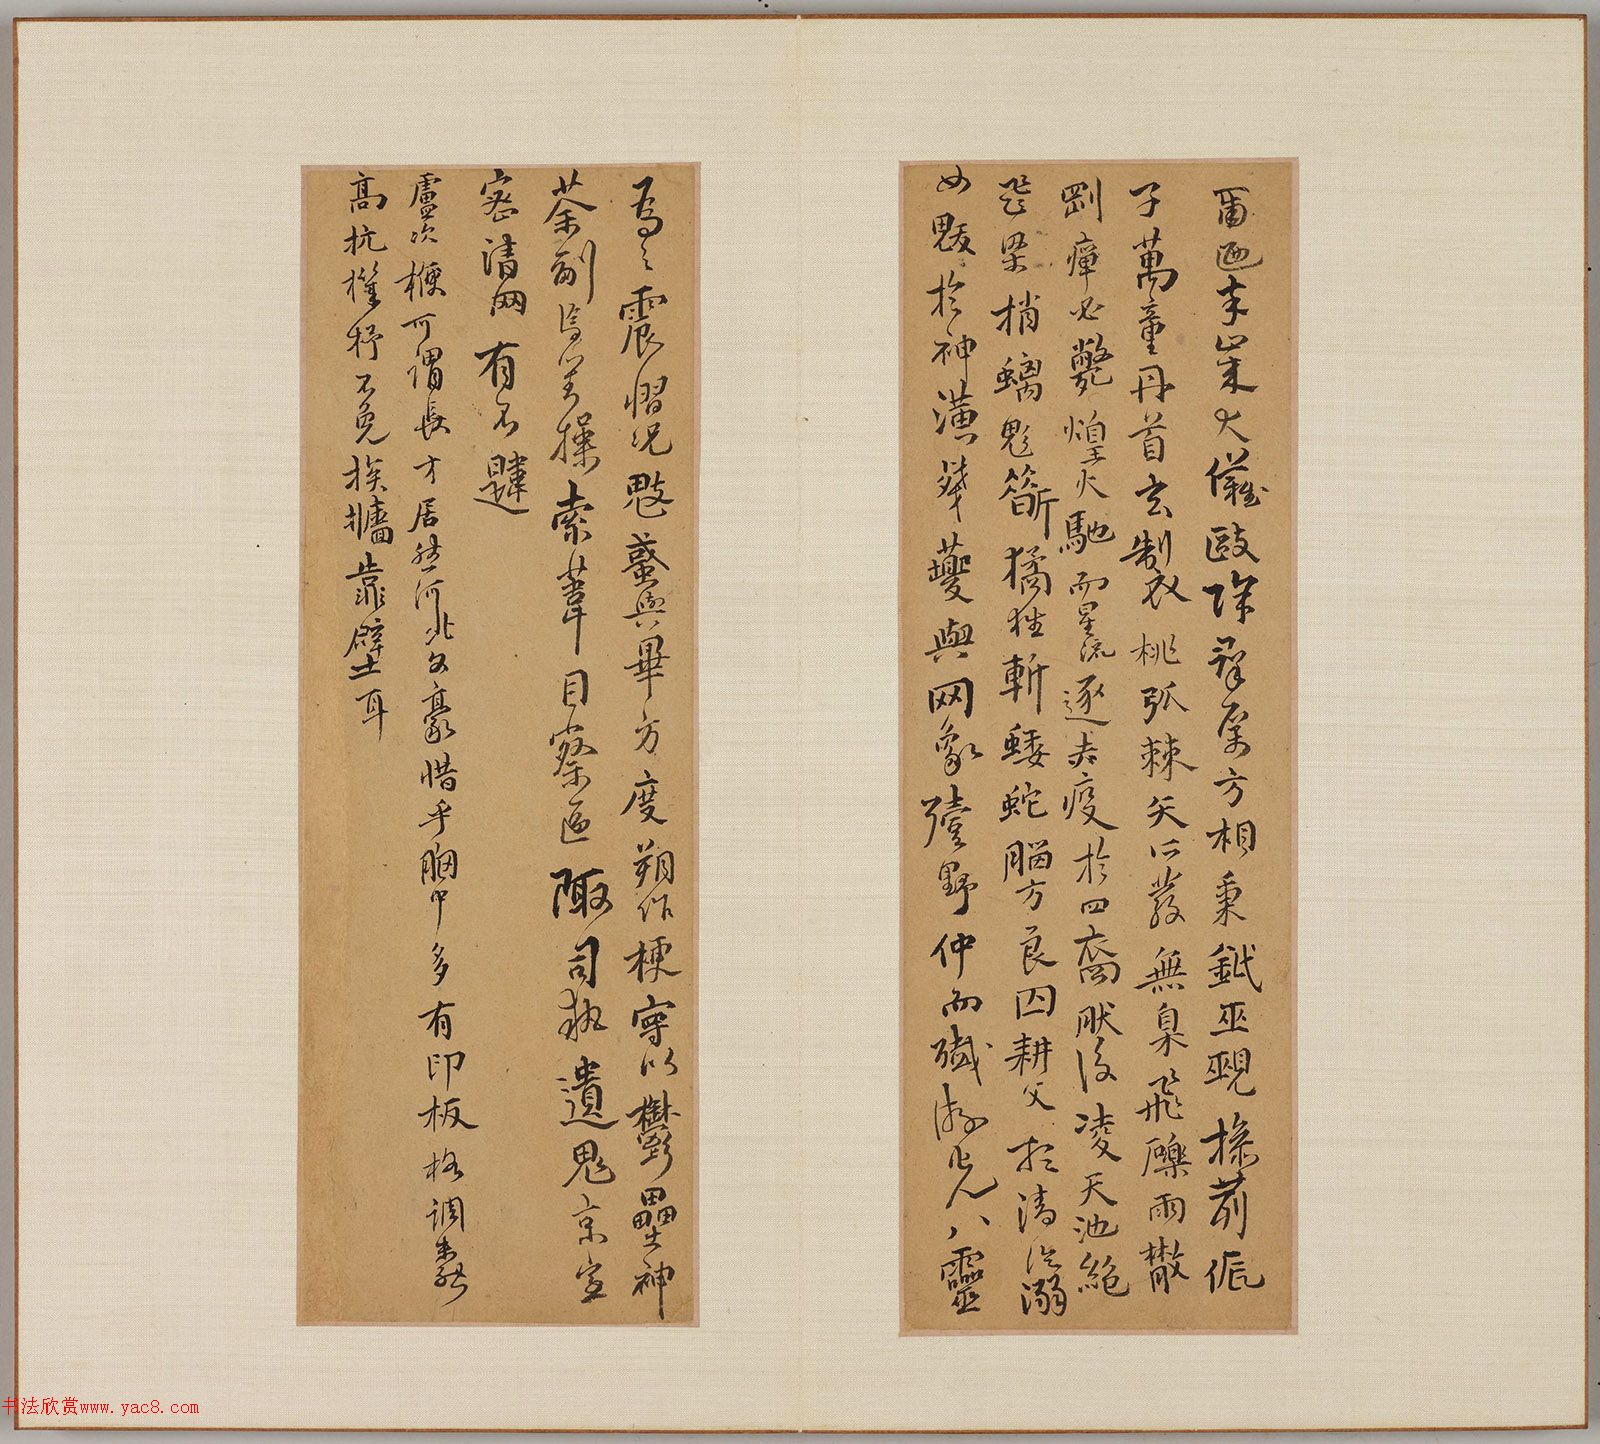 爾迺卒歲大儺毆除群厲方相秉鉞巫覡操茢侲
子萬童丹首玄製桃弧棘矢所發無臬飛礫雨散
剛癉必斃煌火馳而星流逐赤疫於四裔然後凌天池絕
飛梁捎螭鬽斮獝狂斬蜲蛇腦方良囚耕父於清泠溺
女魃於神潢殘夔與网象殪野仲而殲游光八靈
為之震慴况鬾蜮與畢方度朔作梗守以鬱壘神
荼副焉對操索葦目察區陬司執遺鬼京室
密清网有不韙
盧次楩可謂長才居然河北文豪惜乎胸中多有印板格調未能
高抗機杼不免挨墻靠壁耳
书法欣赏www.yac8.com